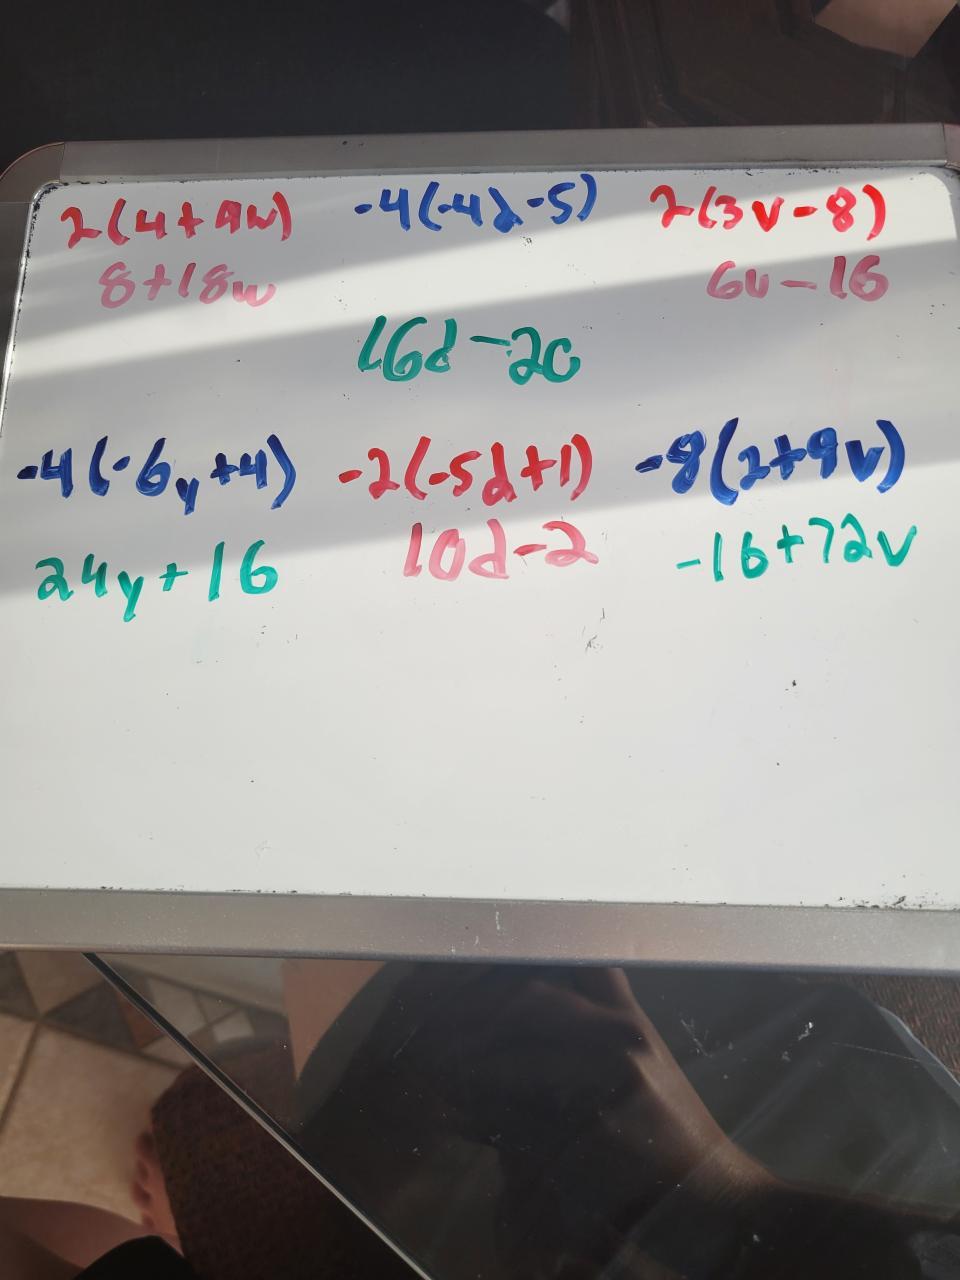 2(4+9w) -4(-4d-5) 2(3v-8)
8+18w 6v-16
16d-20
-4(-6y+4) -2(-5d+1) -8(2+9v)
24y+16 10d-2 -16+72v